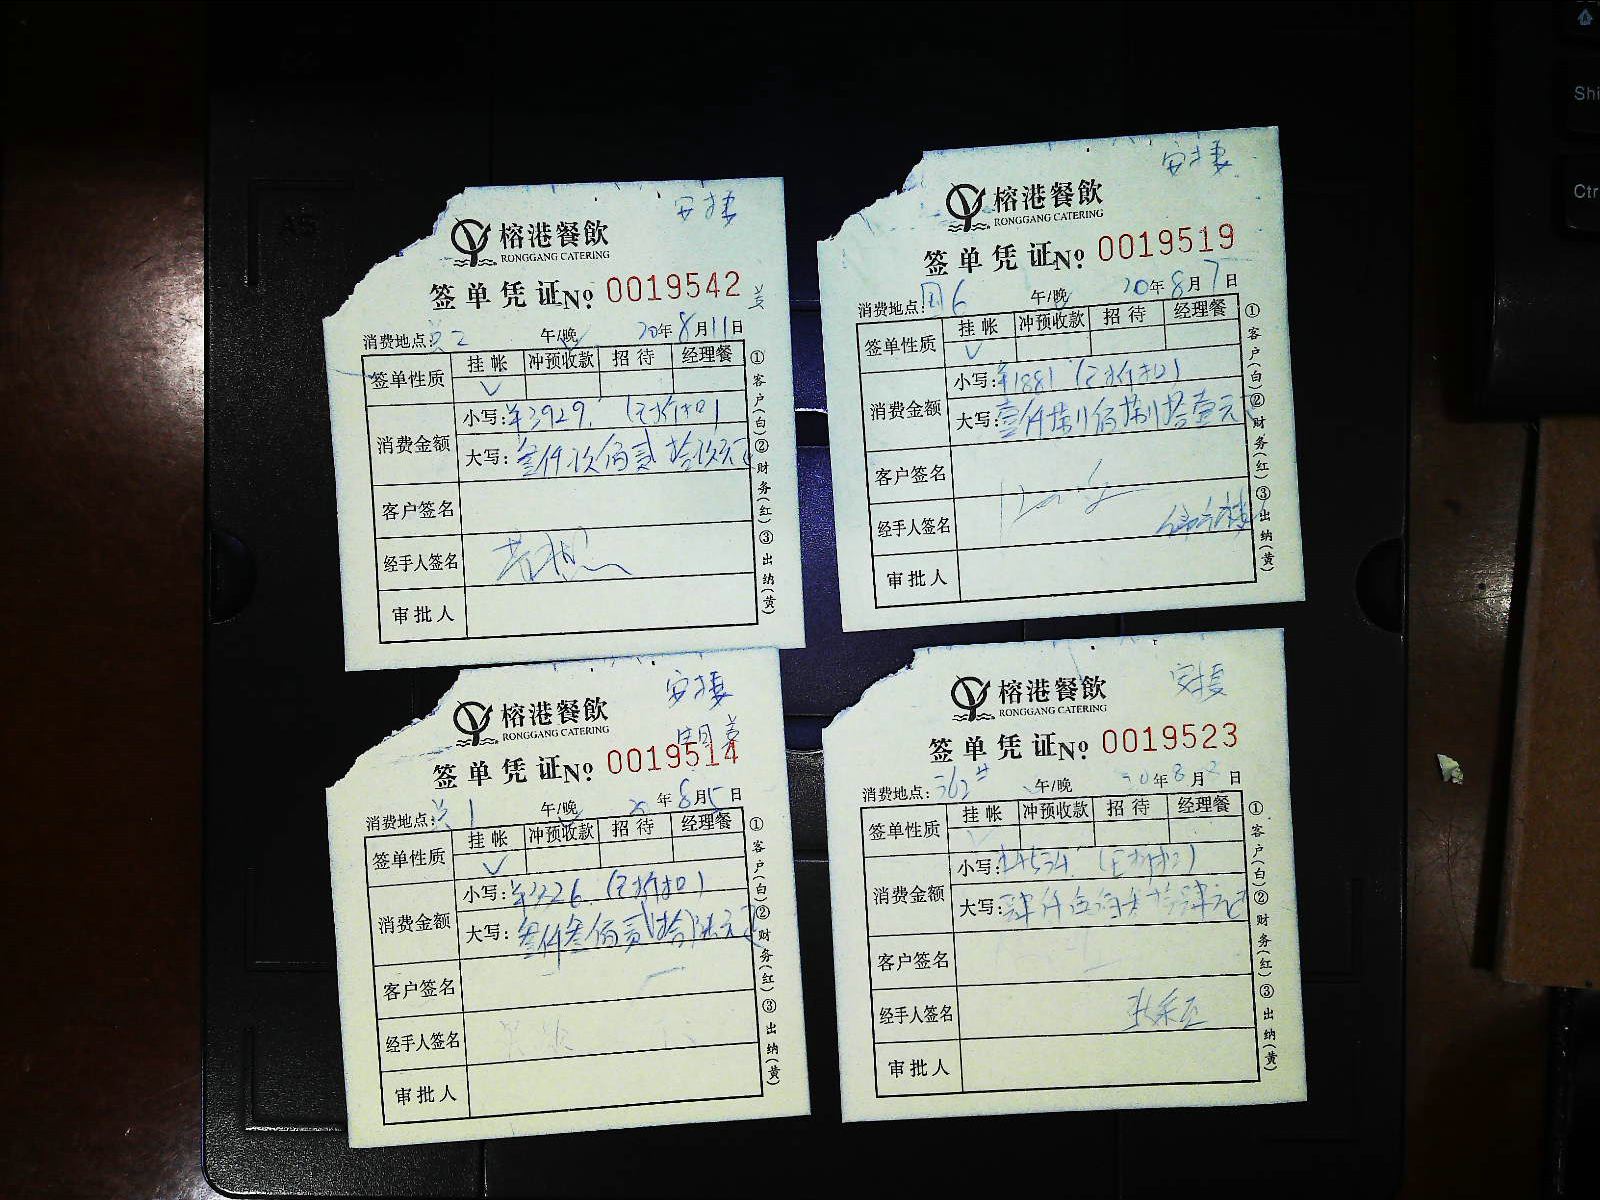 榕港餐飲
RONGGANG CATERING
签单凭证 No 0019542
消费地点: 午/晚 20年8月11日
签单性质 挂帐 冲预收款 招待 经理餐
消费金额 小写:¥3929.
大写:叁仟玖佰贰拾玖元正
客户签名
经手人签名
审批人
①客户(白)②财务(红)③出纳(黄)
安接
榕港餐飲
RONGGANG CATERING
签单凭证 No 0019519
消费地点: 6 午/晚 20年8月7日
签单性质 挂帐 冲预收款 招待 经理餐
消费金额 小写:¥1881
大写:壹仟捌佰捌拾壹元
客户签名
经手人签名
审批人
①客户(白)②财务(红)③出纳(黄)
安接
榕港餐飲
RONGGANG CATERING
签单凭证 No 0019514
消费地点: 1 午/晚 20年8月5日
签单性质 挂帐 冲预收款 招待 经理餐
消费金额 小写:¥3326.
大写:叁仟叁佰贰拾陆元正
客户签名
经手人签名
审批人
①客户(白)②财务(红)③出纳(黄)
安接
榕港餐飲
RONGGANG CATERING
签单凭证 No 0019523
消费地点: 午/晚 20年8月 日
签单性质 挂帐 冲预收款 招待 经理餐
消费金额 小写:¥4534.
大写:肆仟伍佰叁拾肆元正
客户签名
经手人签名
审批人
①客户(白)②财务(红)③出纳(黄)
Shi
Ctr